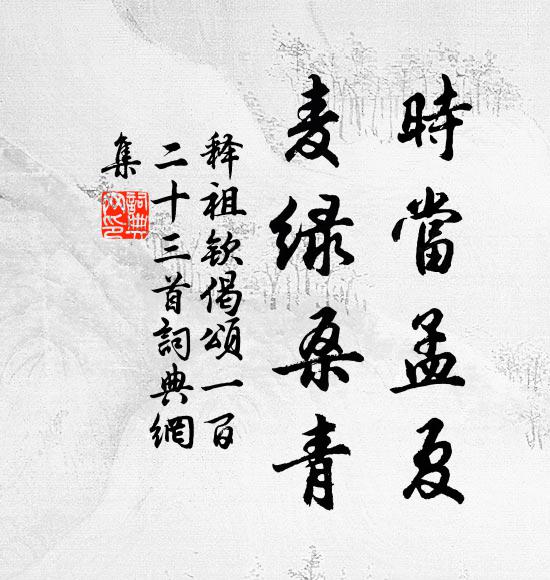 時當孟夏
麦绿桑青
释祖钦偈颂一百
二十三首詞典網
集
詞典網印